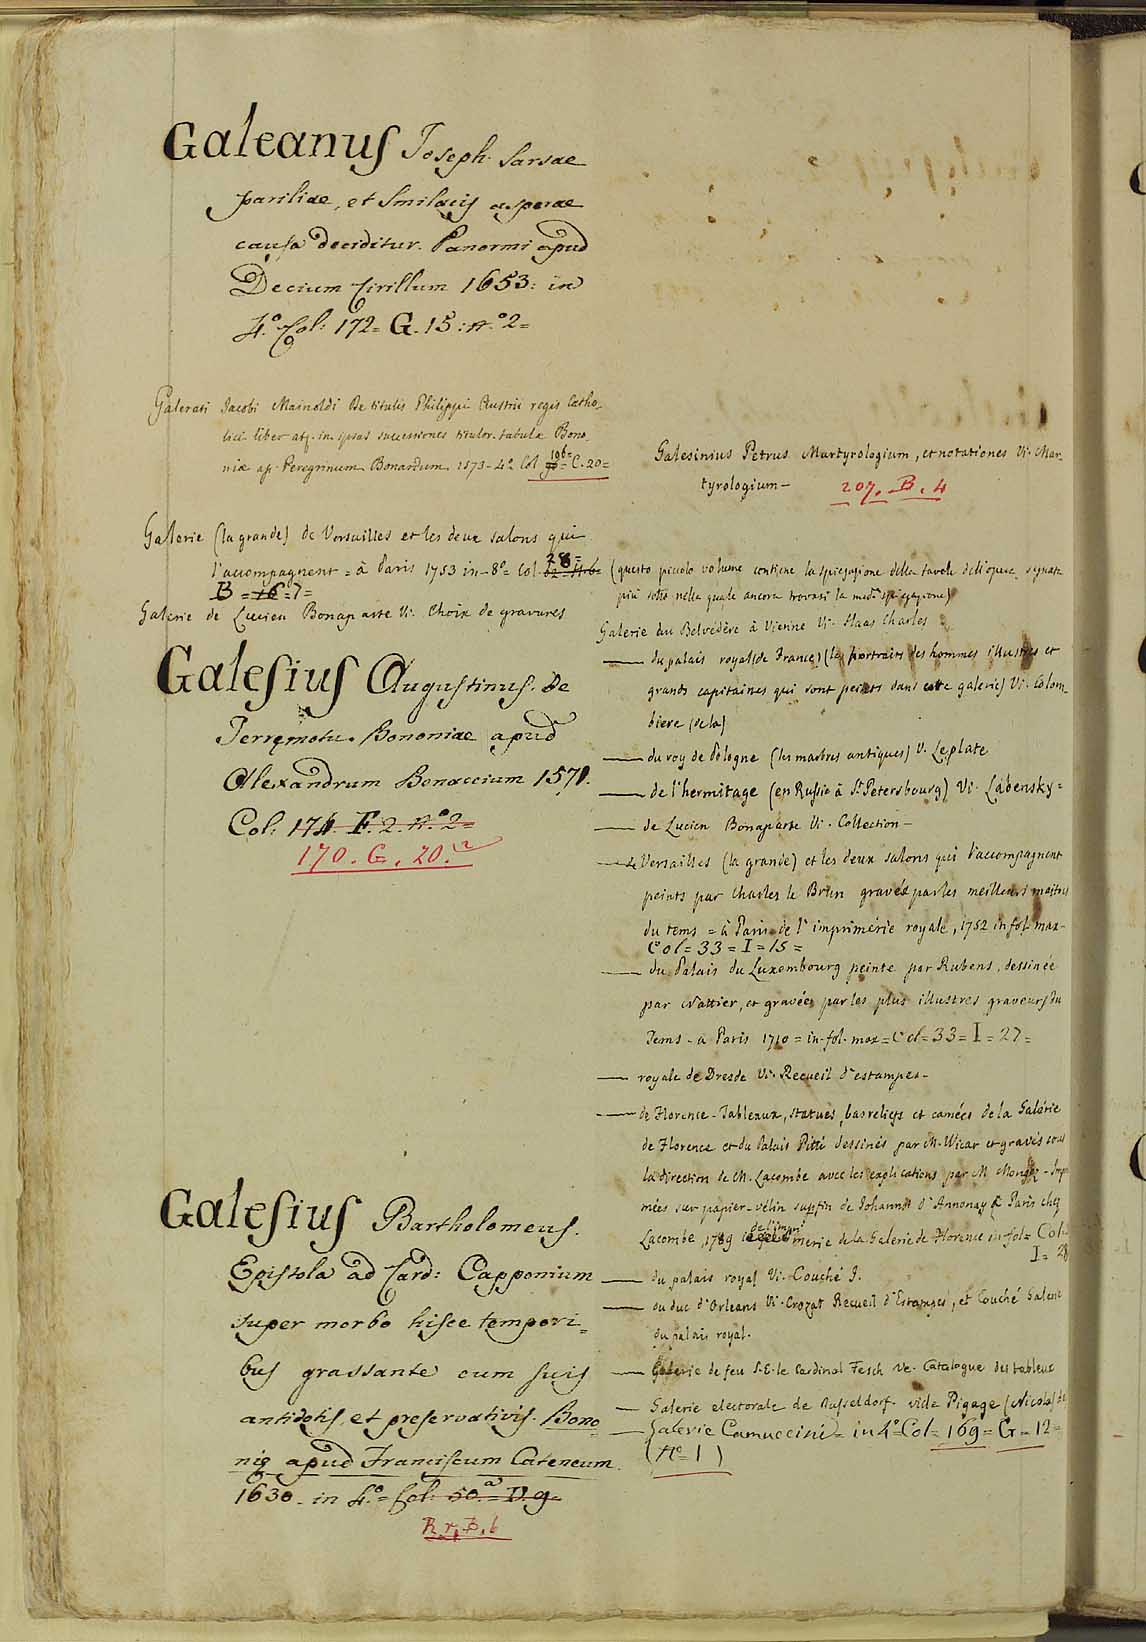 Galeanus Joseph. Sarsae
pariliae, et Smilacis asperae
causa deciditur. Panormi apud
Decium Cirillum 1653: in
4.º Col: 172= G. 15: n.º 2=
Galerati Jacobi Mainoldi De titulis Philippi Austrii regis Catho-
lici liber atq. in ipsas successiones titulor. tabulæ Bono-
niæ ap. Peregrinum Bonardum 1573- 4º Col 196= C. 20=
Galerie (la grande) de Versailles et les deux salons qui
l'accompagnent = à Paris 1753 in-8º= Col. 28=
B = 7=
Galerie de Lucien Bonaparte Vi. Choix de gravures
Galesius Augustinus. De
Terręmotu. Bononiae apud
Alexandrum Benaccium 1571.
Col: 174. F. 2. n.º 2=
170. G. 20.
Galesius Bartholomeus.
Epistola ad Card: Capponium
super morbo hisce tempori=
bus grassante cum suis
antidotis, et preservativis. Bono
nię apud Franciscum Cateneum
1630. in 4.º= Col: 50.ª= D. 9=
R. r. B. 6
Galesinius Petrus Martyrologium, et notationes Vi. Mar-
tyrologium-
207. B. 4
(questo piccolo volume contiene la spiegazione delle tavole dell'opera segnata
più sotto nella quale ancora trovasi la med.ª spiegazione)
Galerie du Belvédère à Vienne Vi. Haas Charles
—— du palais royal (de France) (les portraits des hommes illustres et
grands capitaines qui sont peints dans cette galerie) Vi. Colom-
biere (de la)
—— du roy de Pologne (les marbres antiques) V. Leplate
—— de l'hermitage (en Russie à St. Petersbourg) Vi. Labensky=
—— de Lucien Bonaparte Vi. Collection-
—— de Versailles (la grande) et les deux salons qui l'accompagnent
peints par Charles le Brun gravés par les meilleurs maitres
du tems = à Paris de l'imprimerie royale, 1752 in fol. max-
Col= 33= I= 15=
—— du Palais du Luxembourg peinte par Rubens, dessinée
par Nattier, et gravées par les plus illustres graveurs du
Tems - à Paris 1710= in-fol. max= Col= 33= I= 27=
—— royale de Dresde Vi. Recueil d'estampes-
—— de Florence - Tableaux, statues, bas reliefs et camées de la Galérie
de Florence et du Palais Pitti dessinés par M. Wicar et gravés sous
la direction de M. Lacombe avec les explications par M Mongez - Imp
mées sur papier-vélin superfin de Johannot d'Annonay à Paris chez
Lacombe, 1789 de l'imprimerie de la Galerie de Florence in fol= Col:
I= 28
—— du palais royal Vi. Couché J.
—— du duc d'Orleans Vi. Crozat Recueil d'Estampes, et Couché Galerie
du palais royal.
—— Galerie de feu S. E. le Cardinal Fesch Ve. Catalogue des tableux
— Galerie electorale de Dusseldorf. vide Pigage (Nicolas) de
— Galerie Camuccini= in 4º= Col= 169= G= 12=
(nº= 1)